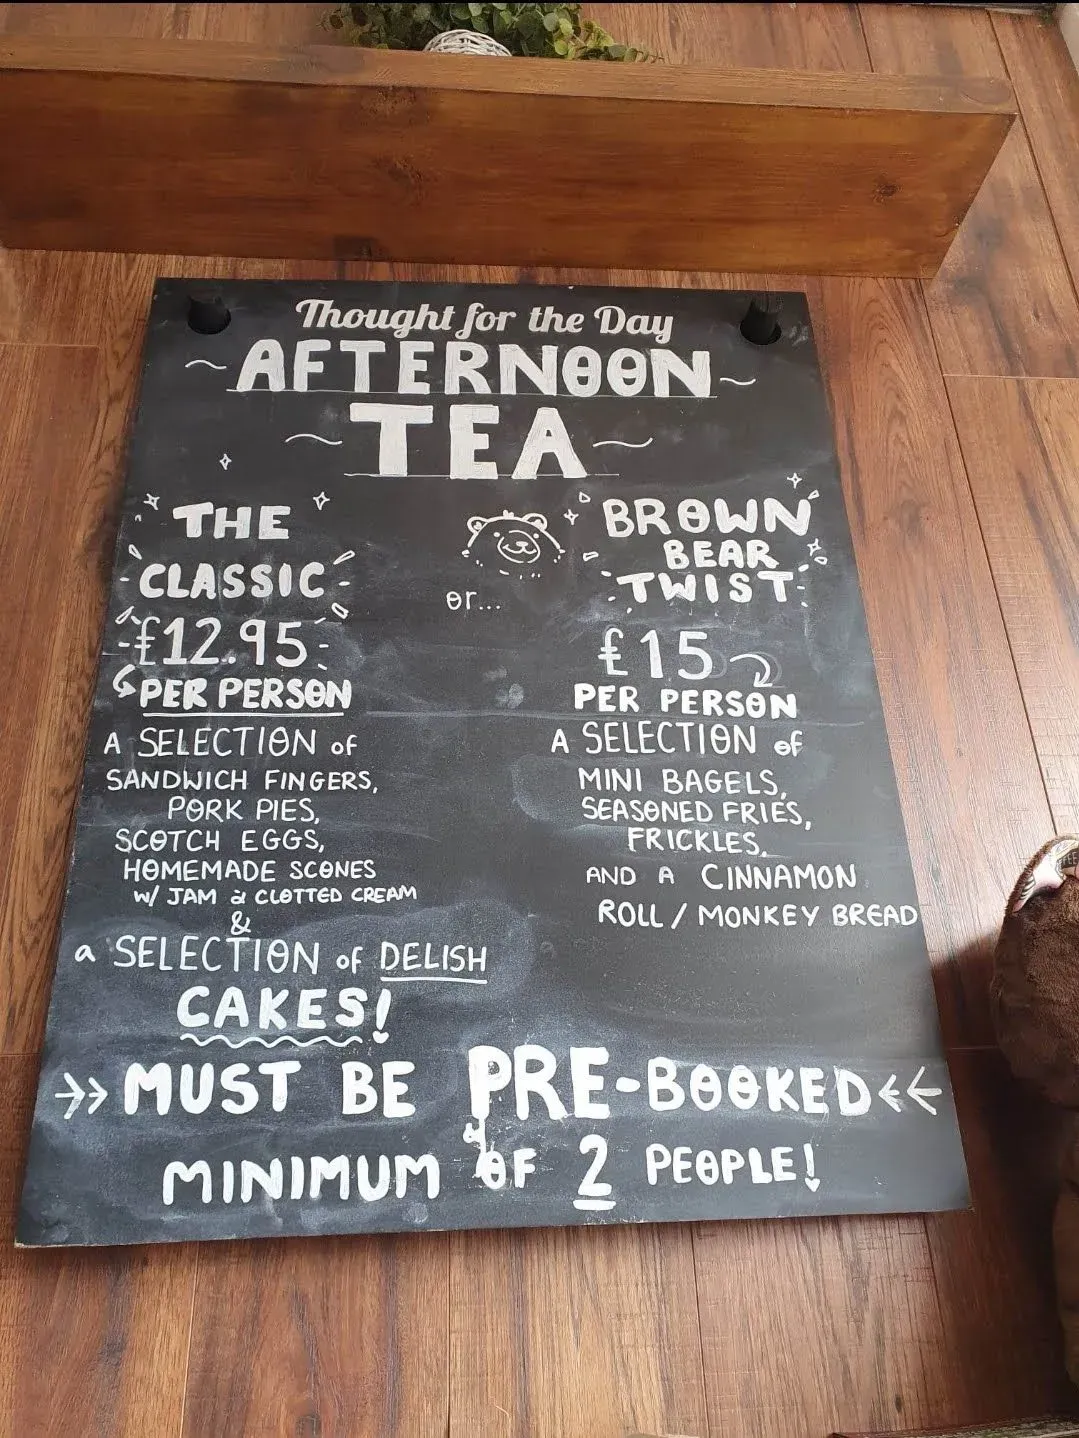 Thought for the Day
AFTERNOON
TEA
THE
CLASSIC
£12.95
PER PERSON
A SELECTION of
SANDWICH FINGERS,
PORK PIES,
SCOTCH EGGS,
HOMEMADE SCONES
W/ JAM & CLOTTED CREAM
&
a SELECTION of DELISH
CAKES!
or...
BROWN
BEAR
TWIST
£15
PER PERSON
A SELECTION of
MINI BAGELS,
SEASONED FRIES,
FRICKLES,
AND A CINNAMON
ROLL / MONKEY BREAD
MUST BE PRE-BOOKED
MINIMUM OF 2 PEOPLE!